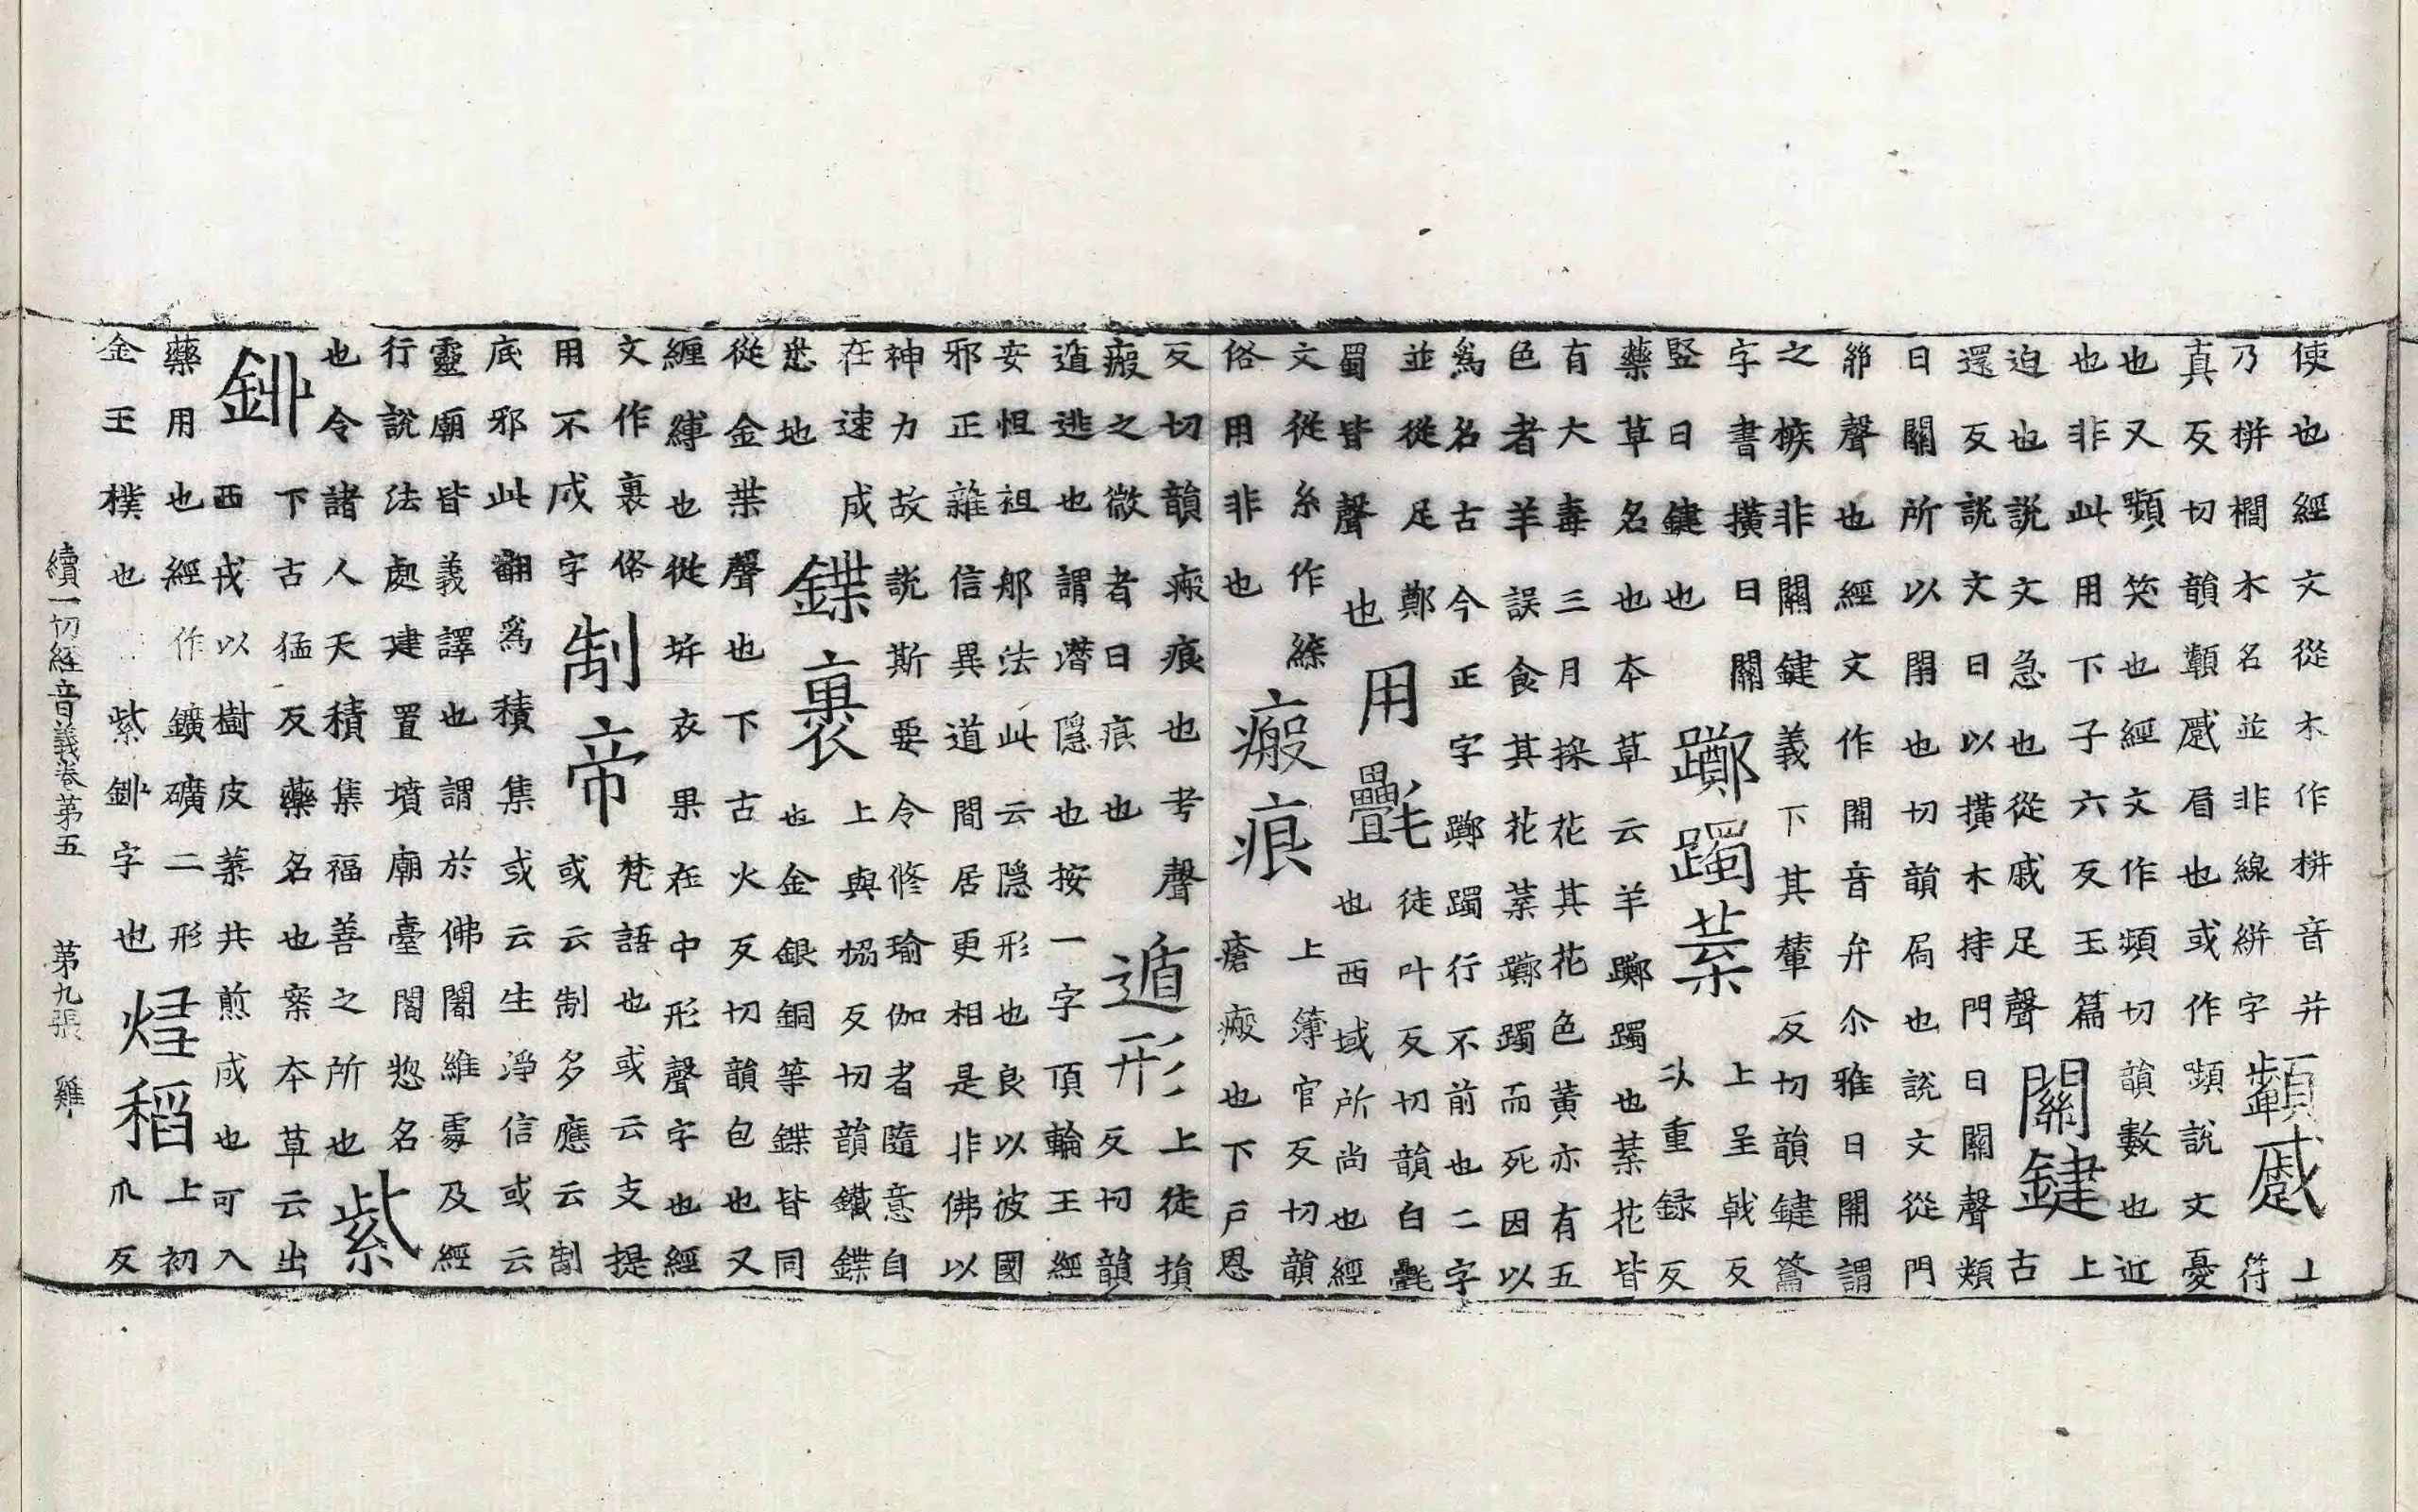 使也經文從木作拼音并
乃拼櫚木名並非線絣字
顰蹙
上
符
真反切韻顰蹙眉也或作嚬說文憂
也又嚬笑也經文作頻切韻數也近
也非此用下子六反玉篇
迫也說文急也從戚足聲
關鍵
上
古
還反說文曰以橫木持門曰關聲類
曰關所以閉也切韻扃也說文從門
聲也經文作開音弁尒雅曰開謂
之㯕非關鍵義下其輦反切韻鍵籥
字書橫曰關
竪曰鍵也
躑躅葉
上呈戟反
次重録反
藥草名也本草云羊躑躅也葉花皆
有大毒三月採花其花色黃亦有五
色者羊誤食其花葉躑躅而死因以
為名古今正字躑躅行不前也二字
並從足鄭
蜀皆聲也
用㲲
徒叶反切韻白㲲
也西域所尚也經
文從糸作緤
俗用非也
瘢痕
上薄官反切韻
瘡瘢也下戶恩
反切韻瘢痕也考聲
瘢之微者曰痕也
遁形
上徒損
反切韻
遁逃也謂潛隱也按一字頂輪王經
安怛袒那法此云隱形也良以彼國
邪正雜信異道間居更相是非佛以
神力故說斯要令修瑜伽者隨意自
在速成
悉地
鍱裹
上與恊反切韻鐵鍱
也金銀銅等鍱皆同
從金枼聲也下古火反切韻包也又
纏縛也從㡀衣果在中形聲字也經
文作裏俗
用不成字
制帝
梵語也或云支提
或云制多應云制
底邪此翻為積集或云生淨信或云
靈廟皆義譯也謂於佛闍維處及經
行說法處建置墳廟臺閣惣名
也令諸人天積集福善之所也
紫
𨥥
下古猛反藥名也案本草云出
西戎以樹皮葉共煎成也可入
藥用也經作鑛礦二形
金玉樸也紫𨥥字也
稻
上初
爪反
續一切經音義卷第五 第九張 雞